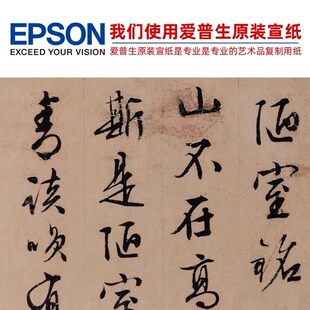 EPSON
EXCEED YOUR VISION
我们使用爱普生原装宣纸
爱普生原装宣纸是专业是专业的艺术品复制用纸
陋室銘
山不在高
斯是陋室
青談笑有